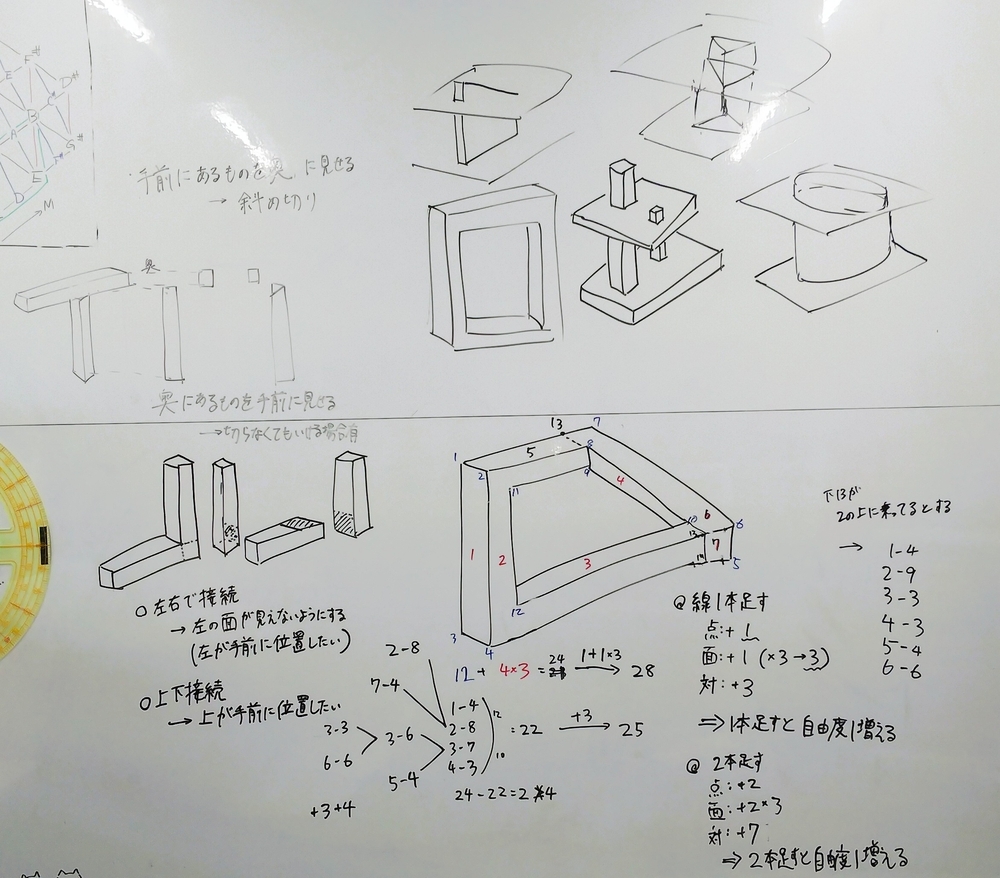 F#
E
D#
C
B
A
G#
E
D
M
手前にあるものを奥に見せる
→ 斜め切り
奥
奥にあるものを手前に見せる
→切らなくてもいける場合有
○左右で接続
→ 左の面が見えないようにする
(左が手前に位置したい)
○上下接続
→ 上が手前に位置したい
13
7
1
5
8
2
9
11
4
6
10
6
13
7
1
2
3
5
12
3
4
12 + 4×3 = 24 1+1×3 → 28
2-8
7-4
3-3
6-6
3-6
5-4
1-4
2-8
3-7
4-3
12
10
=22 +3 → 25
24-22=2
+3+4
@ 線1本足す
点:+1
面:+1 (×3→3)
対:+3
⇒1本足すと自由度1増える
@ 2本足す
点:+2
面:+2×3
対:+7
⇒2本足すと自由度1増える
下13が
2の上に乗ってるとする
→ 1-4
2-9
3-3
4-3
5-4
6-6